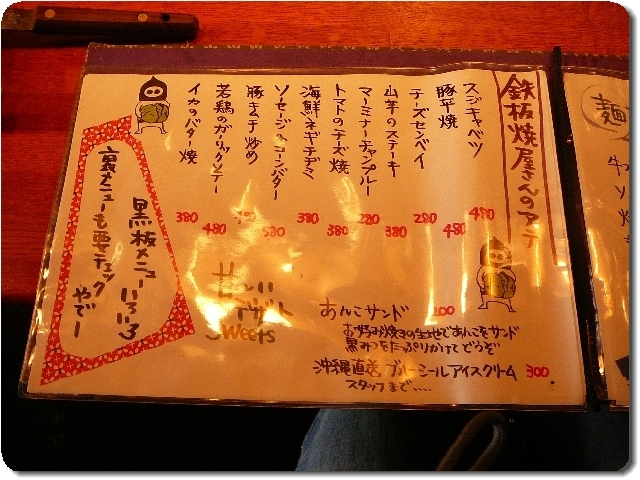 鉄板焼屋さんのアテ
スジキャベツ 480
豚平焼 480
チーズセンベイ 280
山芋のステーキ 380
マーミナーチャンプルー 280
トマトのチーズ焼 380
海鮮ネギチヂミ 380
ソーセージ・コーンバター
豚キムチ炒め
若鶏のガーリックソテー 480
イカのバター焼 380
黒板メニューいろいろ
裏メニューも要チェック
やでー
Sweets
あんこサンド 200
お好み焼きの生地であんこをサンド
黒みつをたっぷりかけてどうぞ
沖縄直送 ブルーシールアイスクリーム 300
スタッフまで....
麺